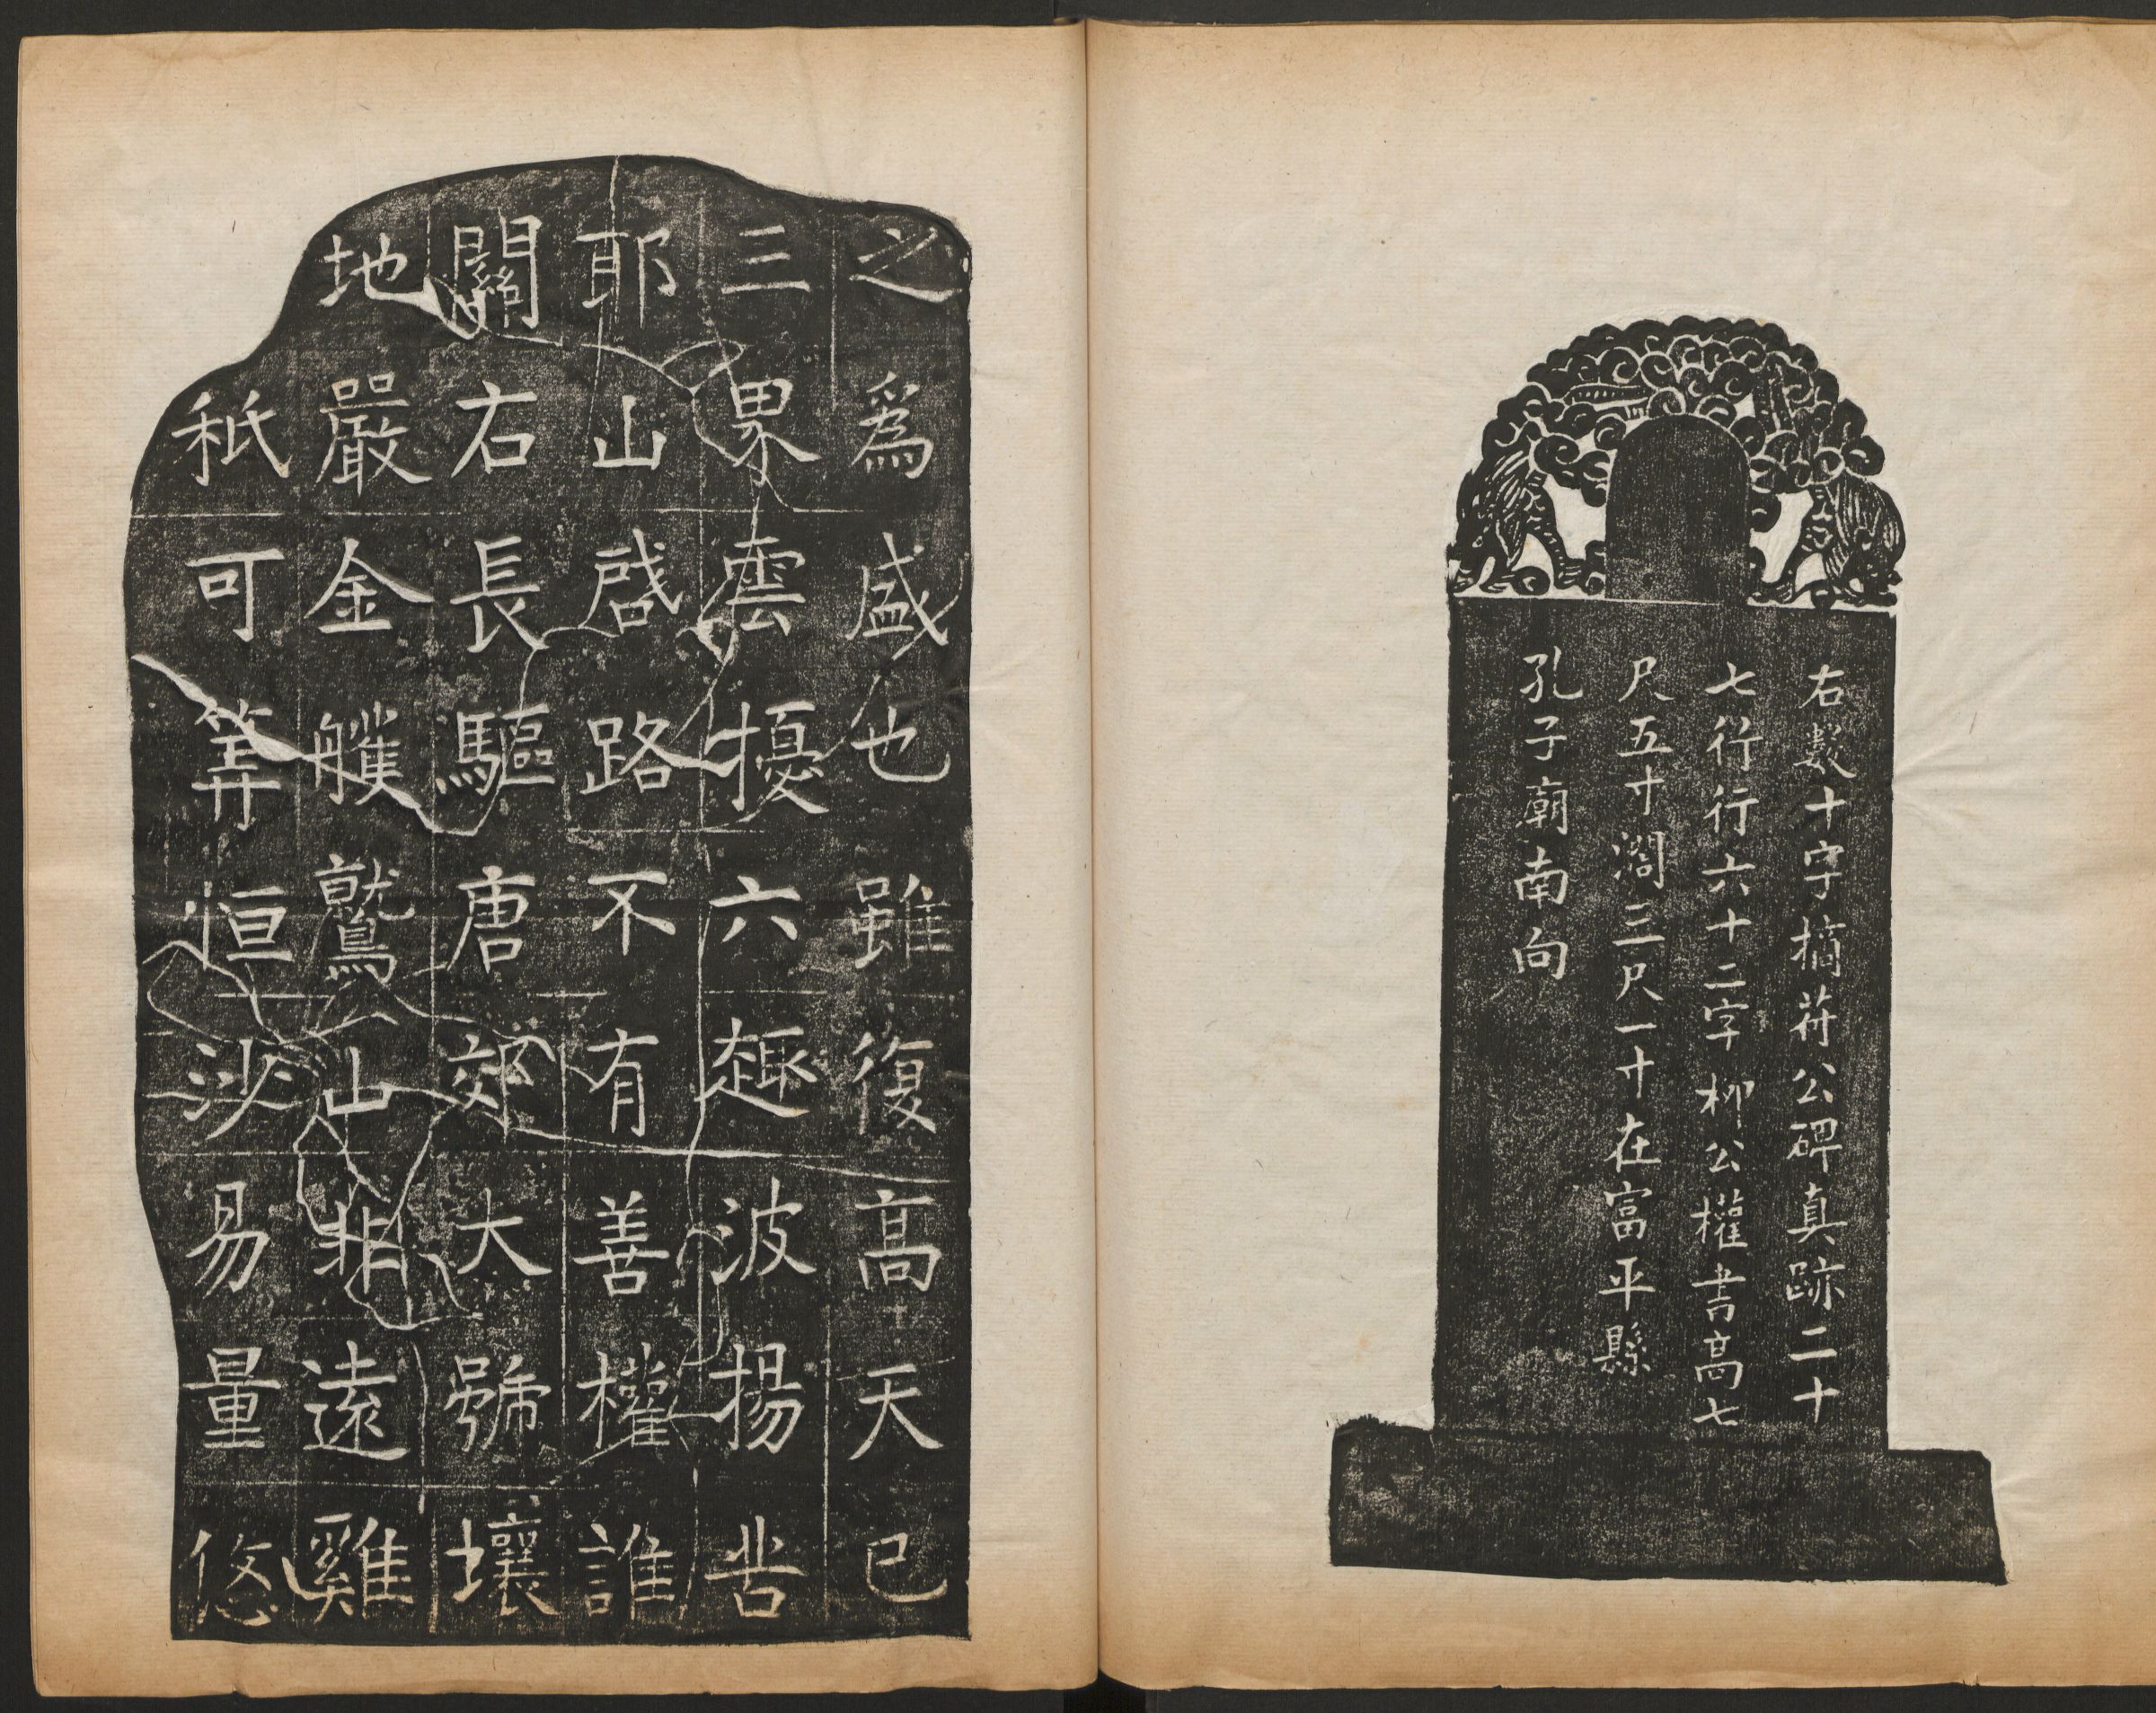 右數十字摘苻公碑真跡二十
七行行六十二字柳公權書高七
尺五寸濶三尺一寸在富平縣
孔子廟南向
之為盛也雖復高天已
三界雲擾六趣波揚苦
耶山啓路不有善權誰
關右長驅唐郊大號壤
地嚴金艧鷲山非遠雞
秖可筭恒沙易量悠